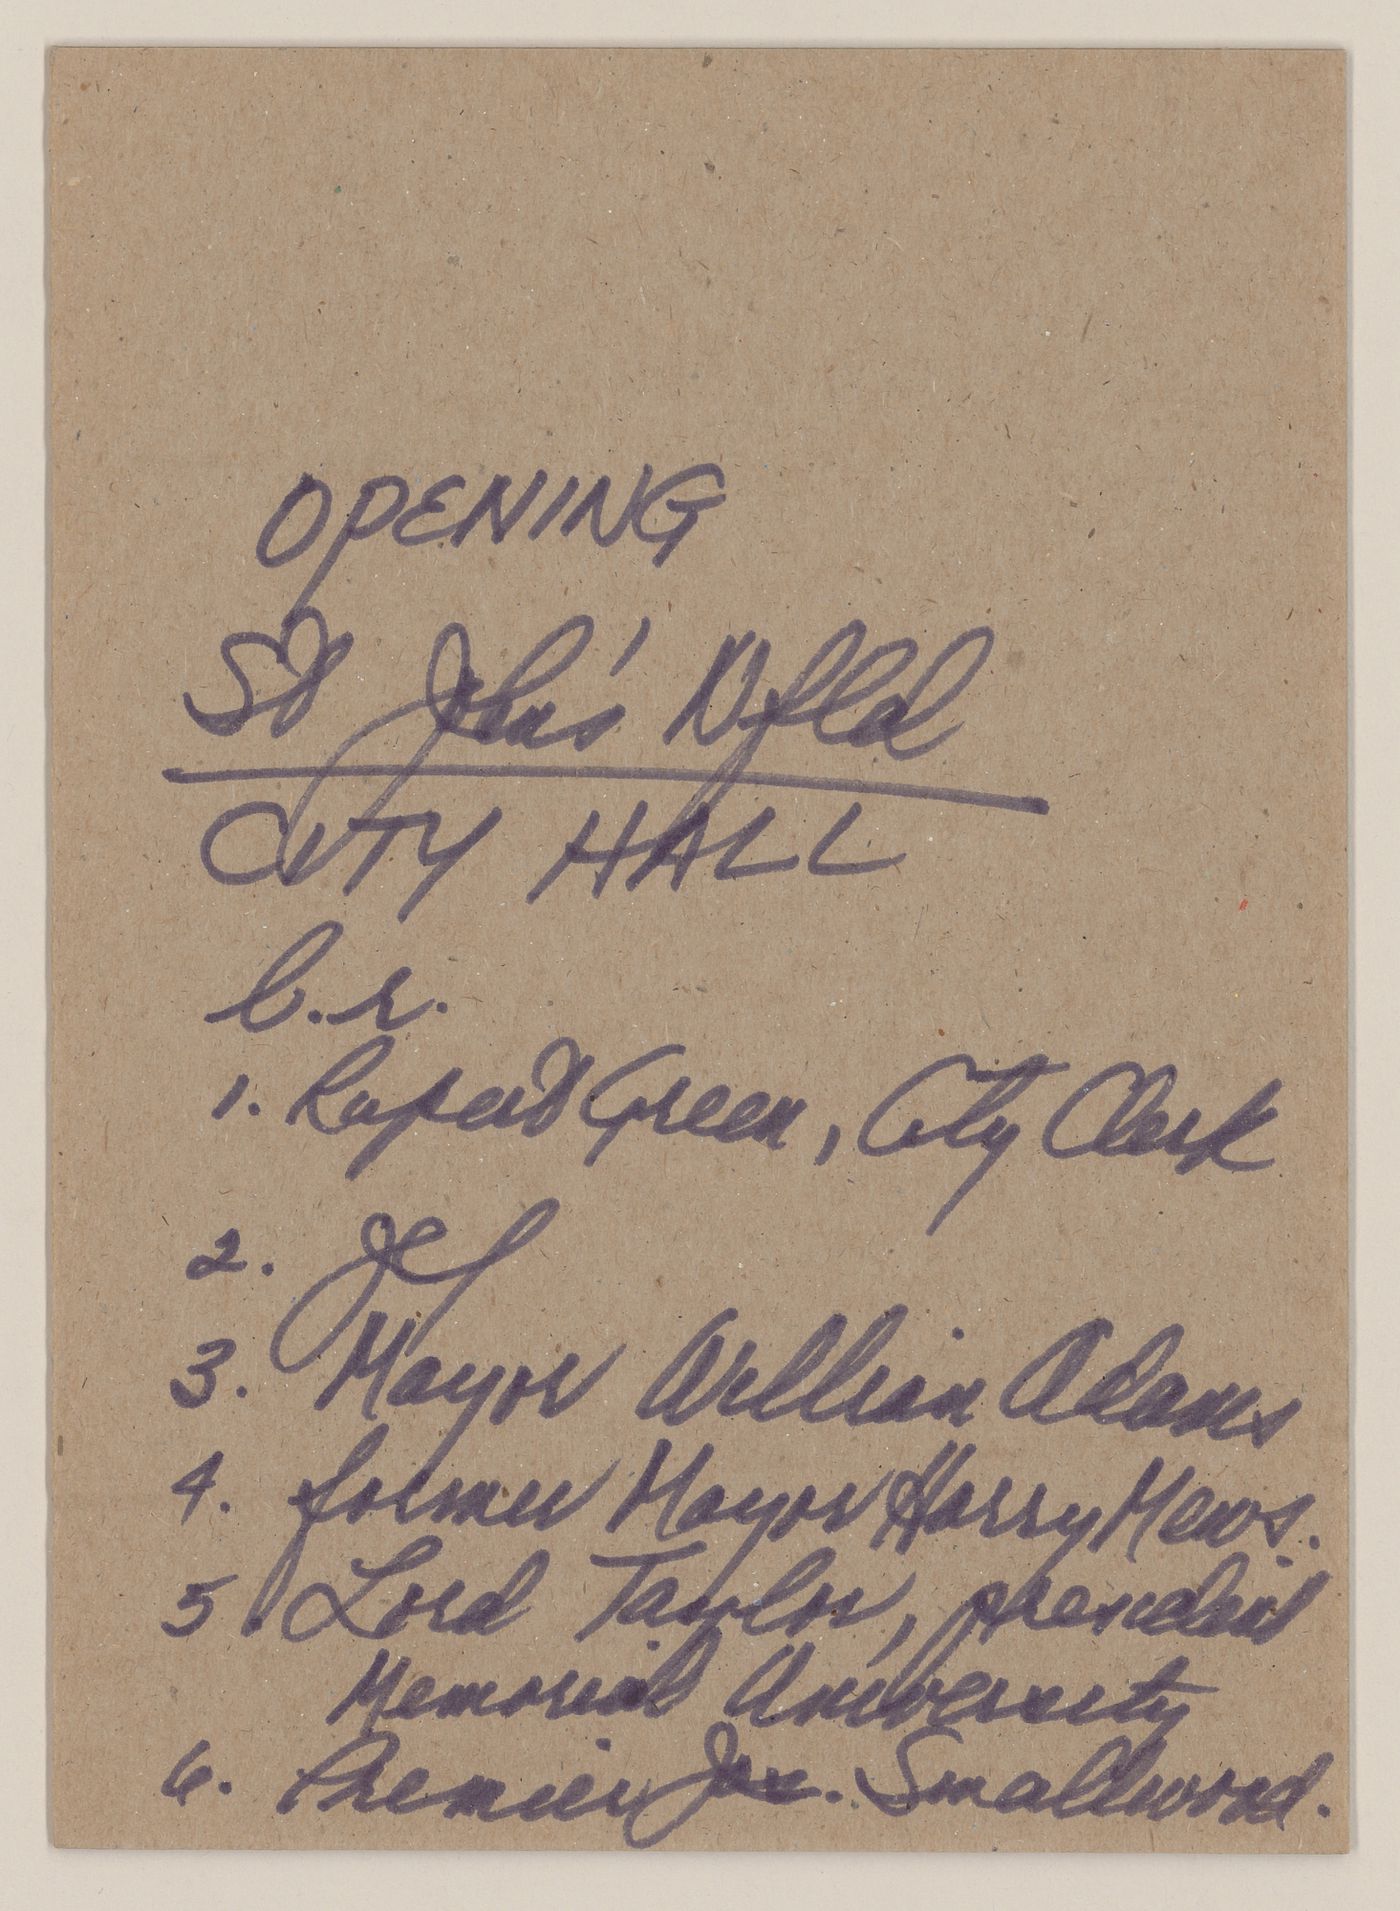 OPENING
St John's Nfld
CITY HALL
l.r.
1. Rupert Green, City Clerk
2. JCP
3. Mayor William Adams
4. former Mayor Harry Mews.
5. Lord Taylor, president
Memorial University
6. Premier Joe. Smallwood.